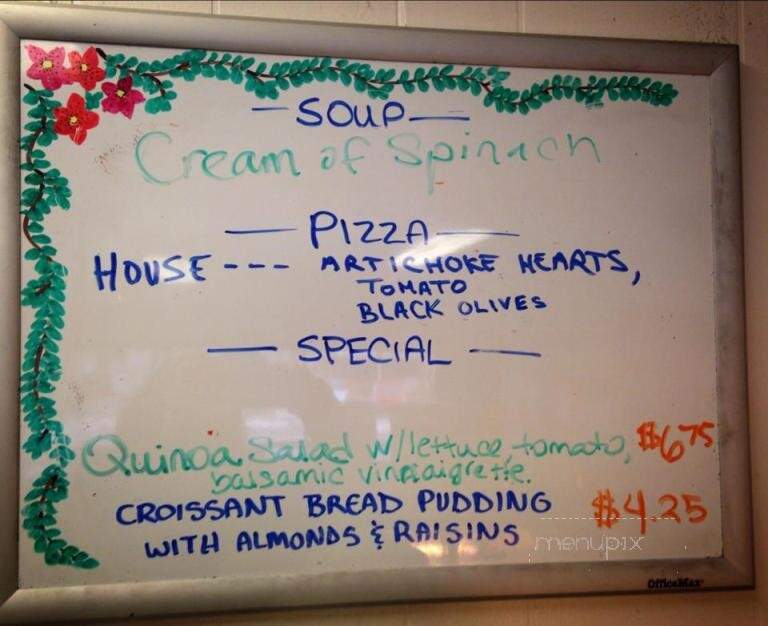 — SOUP —
Cream of Spinach
— PIZZA —
HOUSE --- ARTICHOKE HEARTS,
TOMATO
BLACK OLIVES
— SPECIAL —
Quinoa Salad w/lettuce, tomato, $6.75
balsamic vinaigrette.
CROISSANT BREAD PUDDING $4.25
WITH ALMONDS & RAISINS
menupix
OfficeMax